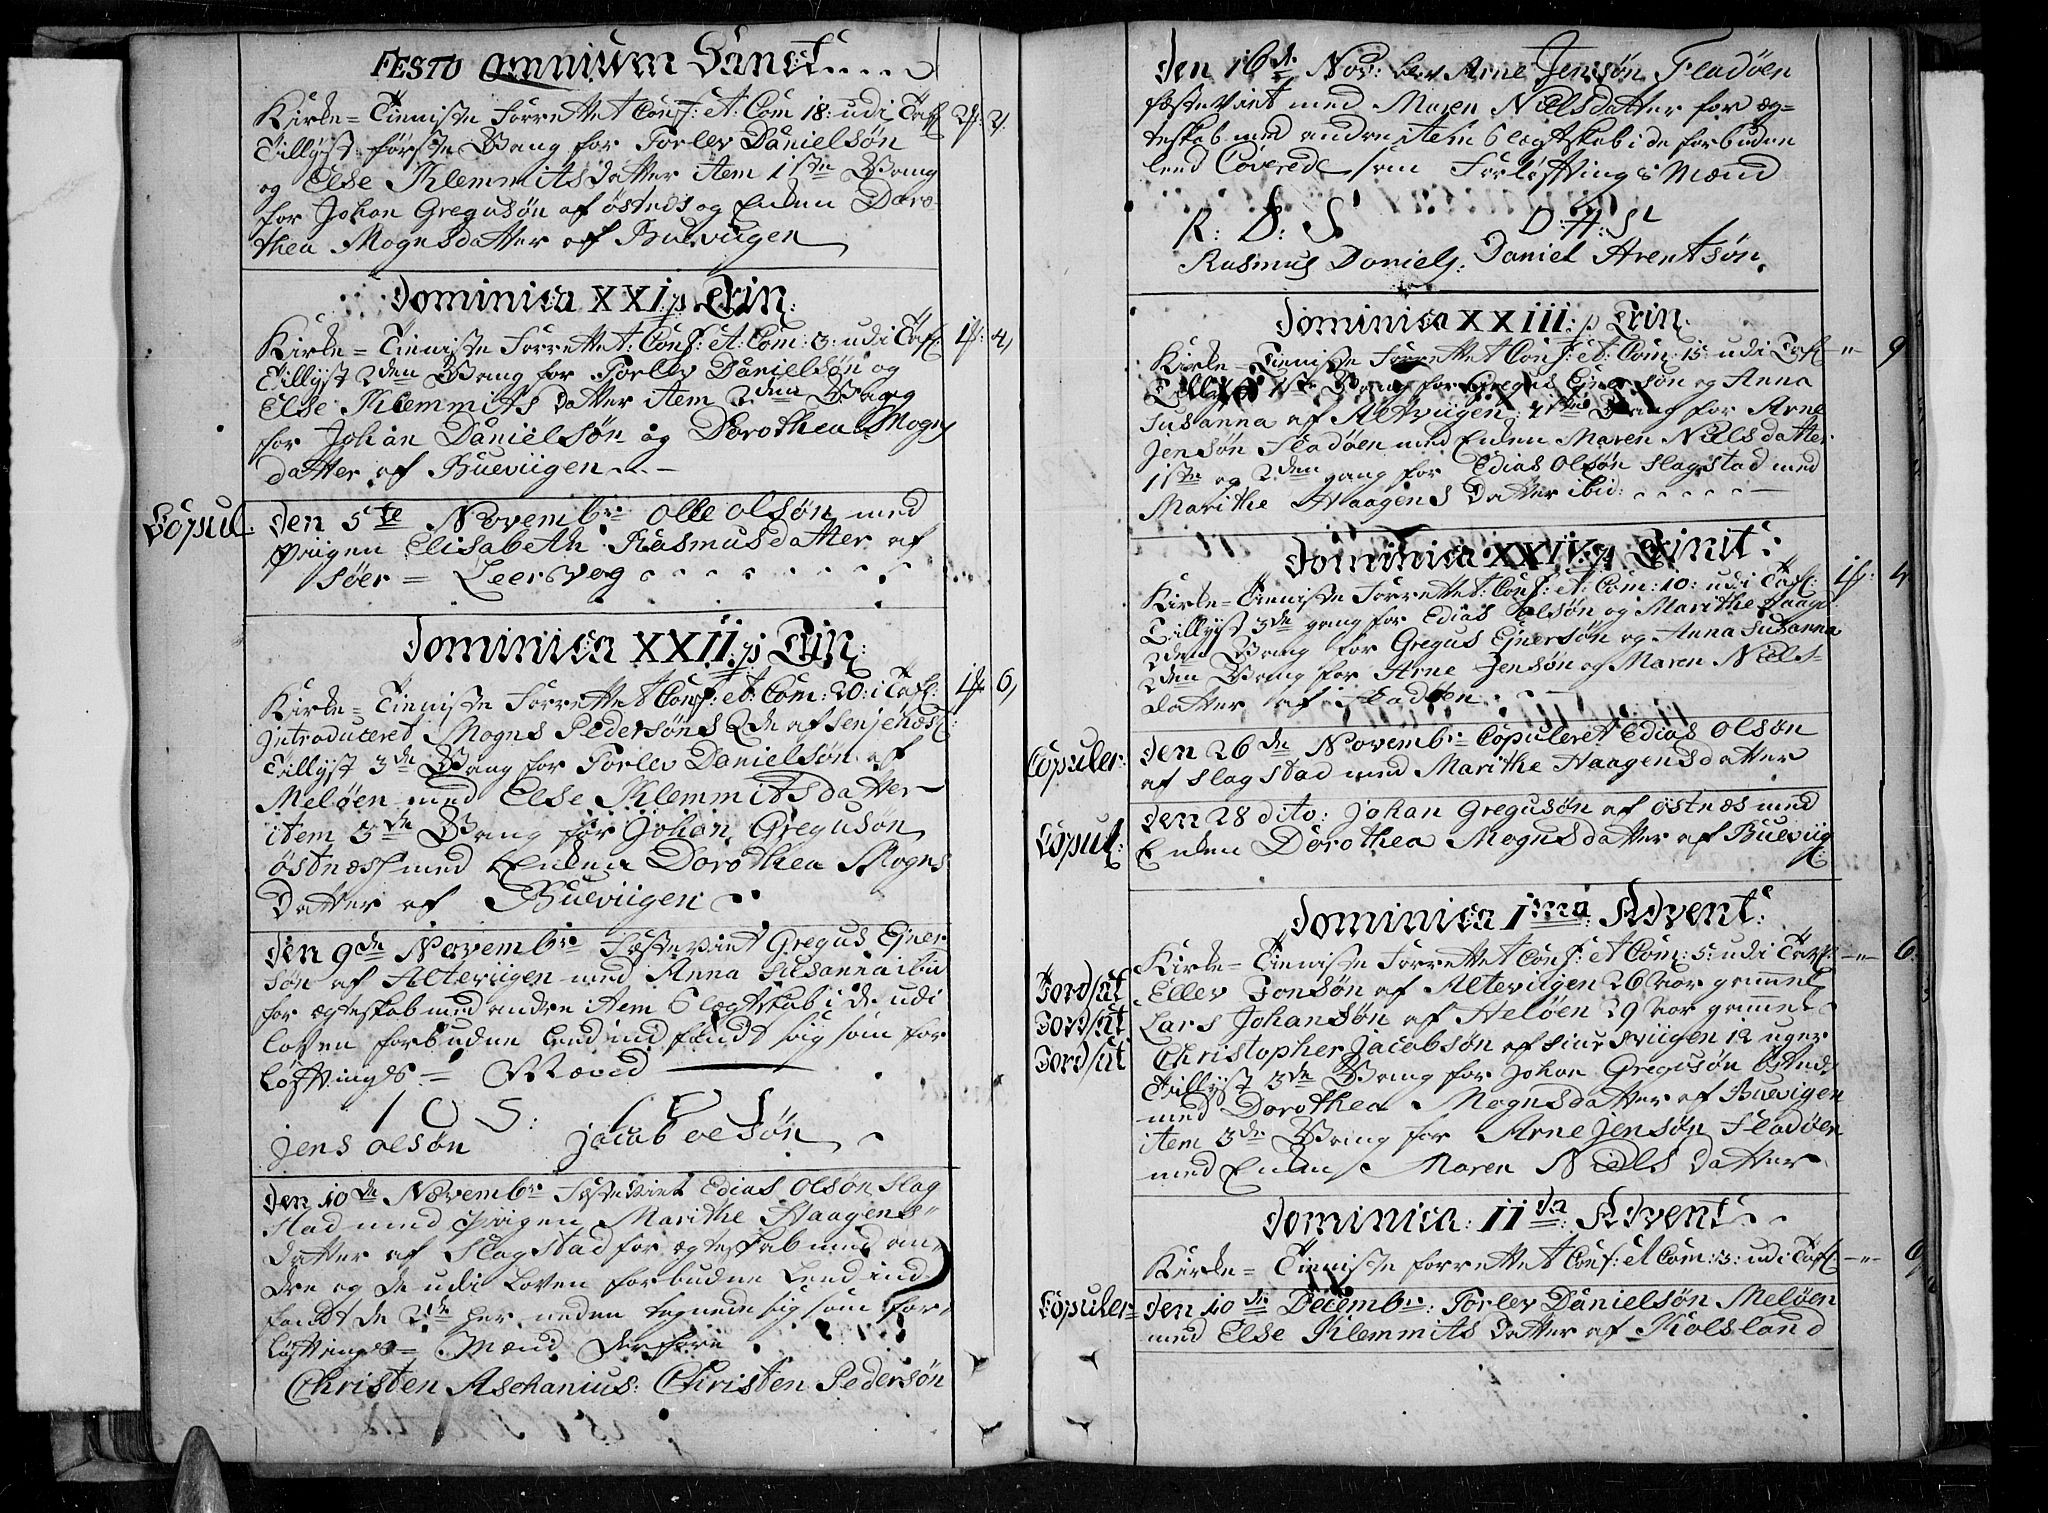 FESTO omnium Sanct:
Kirke=Tienniste Forrettet Conf: et: Com 18: udi Tafl 2f: 2.
Tillyst første Gang for Torlev Danielsøn
og Else Klemmitsdatter item 1ste Gang
for Johan Gregusøn af østnds og Enken Doro-
thea Mognsdatter af Bueviigen
Dominica XXI p Trin:
Kirke=Tienniste Forrettet: Conf: et: Com: 3: udi Tafl: 1f: 4,
Tillyst 2den Gang for Torlev Danielsøn og
Else Klemmits datter item 2den Gang
for Johan Danielsøn og Dorothea Mogns
datter af Bueviigen
Copul: Den 5te Novembr: Olle Olsøn med
Piigen Elisabeth Rasmusdatter af
Søer= Leervog
Dominica XXII: p Trin:
Kirke=Tienniste Forrettet Conf: et: Com: 20: i Tafl: 1f: 6,
Introduceret Mogns Pedersøns af
Tillyst 3de Gang for Torlev Danielsøn af
Meløen med Else Klemmitsdatter
item 3de Gang for Johan Gregusøn
østnæss med Enken Dorothea Mogns
Datter af Bueviigen
Den 9de Novembre Fæstevint Gregus Ejner
søn af Alteviigen med Anna Susanna ibid
for ægteskab med andre item Slegtskab i de udi
Loven forbudne Leed indfandt sig som for
løftnings=Mænd
I O S: I O S
Jens Olsøn Jacob Olsøn
Den 10de Novembr: Fæstevint Edias Olsøn Slag
stad med Piigen Marithe Haagens
Datter af Slagstad for ægteskab med an
dre og de udi Loven forbudne Leed ind
fandt de 2de her neden tegnede sig som for
løftnings= Mænd derfore
Christen Aschanius: Christen Pedersøn
Den 16de Nov:ber Arne Jensøn Fladøen
fæstevint med Maren Nielsdatter for æg-
teskab med andre item Slegtskab i de forbuden
leed Caverede som Forløftnings Mænd
R: D: S D: A: S
Rasmus Daniels: Daniel Arentsøn
Dominica XXIII: p Trin
Kirke=Tienniste Forrettet Conf: et: Com: 15: udi Tafl -"- 9
Tillyst 1ste Gang for Gregus Ejnersøn og Anna
Susanna af Alteviigen: 1ste Gang for Arne
Jensøn Fladøen med Enken Maren Nielsdatter
1ste og 2den gang for Edias Olsøn Slagstad med
Marithe Haagens Datter ibid:
Dominica XXIV: p Trinit:
Kirke=Tienniste Forrettet: Conf: et: Com: 10: udi Tafl: 1f: 4
Tillyst 3de gang for Edias Olsøn og Marithe Haags
2den Gang for Gregus Ejnersøn og Anna Susanna
2den Gang for Arne Jensøn og Maren Niels-
datter af Fladøen
Copuler: Den 26de Novembr: Copuleret Edias Olsøn
af Slagstad med Marithe Haagensdatter
Copul: Den 28 dito: Johan Gregusøn af østnæs med
Enken Dorothea Mognsdatter af Bueviig
Dominica Ima Advent:
Kirke=Tienniste Forrettet Conf: et Com: 5: udi Tafl: -"- 6:
Jordsat Ellev Jonsøn af Alteviigen 26 aar gammel
Jordsat Lars Johansøn af Heløen 29 aar gammel
Jordsat Christopher Jacobsøn af 12 uger
Tillyst 3de Gang for Johan Gregusøn østnds
med Dorothea Mognsdatter af Buevigen
item 3de Gang for Arne Jensøn Fladøen
med Enken Maren Niels datter
Dominica: IIda Advent
Kirke=Tienniste forrettet Conf: et Com: 3: udi Tafl: -"- 6,
Copuler= Den 10de Decembr: Torlev Danielsøn Meløen
med Else Klemmits datter af Kolsland